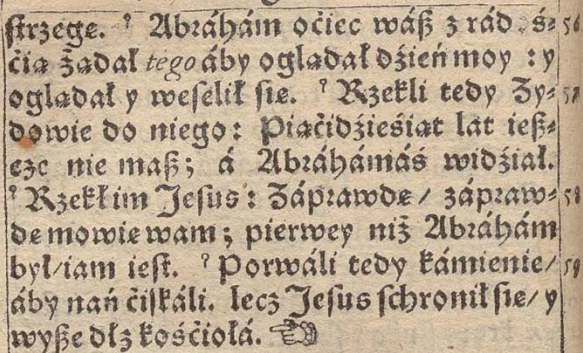 strzege. ⁹ Abráhám oćiec wáß z rádoś⸗ 56
ćią żądał tego áby oglądał dźień moy : y
oglądał y weselił sie. ⁹ Rzekli tedy Ży⸗ 57
dowie do niego: Piąćidźieśiąt lat ieß⸗
cze nie maß; á Abráhámáś widźiał.
⁹ Rzekł im Jesus: Záprawdę/ zápraw⸗ 58
dę mowię wam; pierwey niż Abráhám
był/iam iest. ⁹ Porwáli tedy kámienie/ 59
áby nań ćiskáli. lecz Jesus schronił sie/ y
wyße dł z kośćiołá. ☜